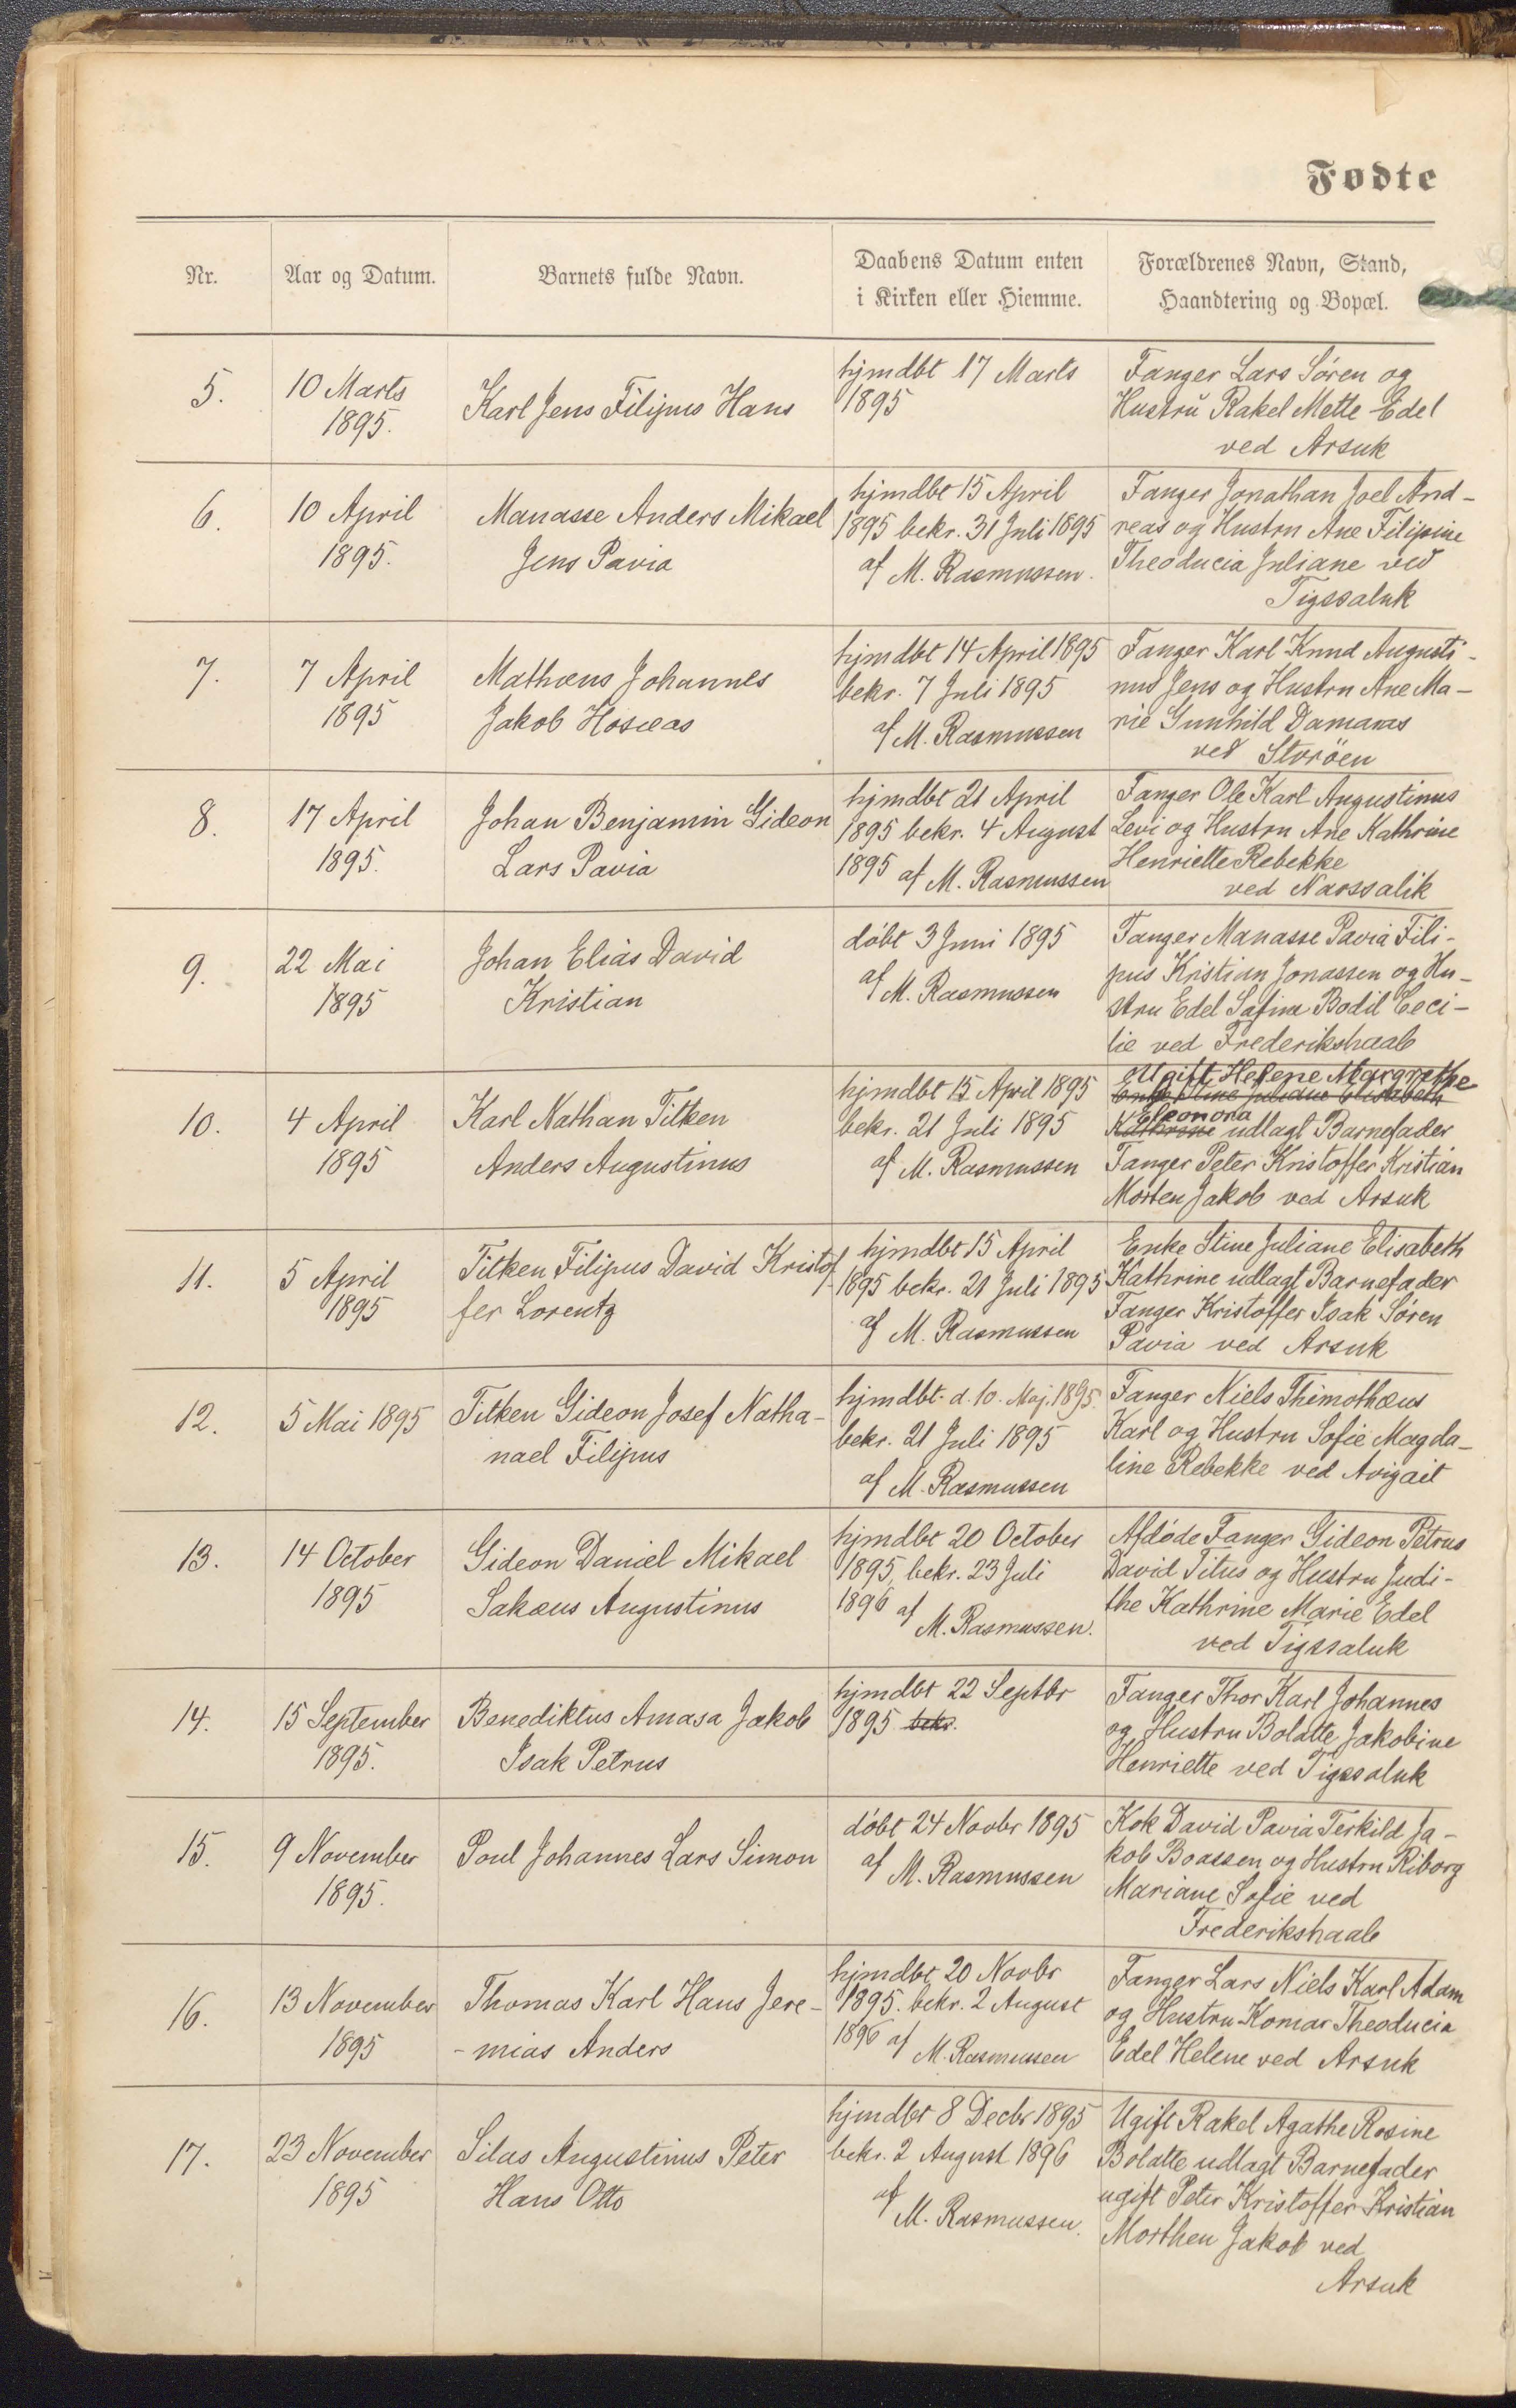 Fødte
Nr.
Aar og Datum.
Barnets fulde Navn.
Daabens Datum enten
i Kirken eller Hiemme.
Forældrenes Navn, Stand,
Haandtering og Bopæl.
5.
10 Marts
1895.
Karl Jens Filipus Hans
hjmdbt 17 Marts
1895
Fanger Lars Søren og
Hustru Rakel Mette Edel
ved Arsuk
6.
10 April
1895.
Manasse Anders Mikael
Jens Pavia
hjmdbt 15 April
1895 bekr. 31 Juli 1895
af M. Rasmussen.
Fanger Jonathan Joel And-
reas og Hustru Ane Filipine
Theoducia Juliane ved
Tigssaluk
7.
7 April
1895
Mathæus Johannes
Jakob Hoseas
hjmdbt 14 April 1895
bekr. 7 Juli 1895
af M. Rasmussen
Fanger Karl Knud Augusti-
nus Jens og Hustru Ane Ma-
rie Gunhild Damaras
ved Storöen
8.
17 April
1895.
Johan Benjamin Gideon
Lars Pavia
hjmdbt 21 April
1895 bekr. 4 August
1895 af M. Rasmussen
Fanger Ole Karl Augustinus
Levi og Hustru Ane Kathrine
Henriette Rebekke
ved Narssalik
9.
22 Mai
1895
Johan Elias David
Kristian
döbt 3 Juni 1895
af M. Rasmussen
Fanger Manasse Pavia Fili-
pus Kristian Jonassen og Hu-
stru Edel Safina Bodil Ceci-
lie ved Frederikshaab
10.
4 April
1895
Karl Nathan Titken
Anders Augustinus
hjmdbt 15 April 1895
bekr. 21 Juli 1895
af M. Rasmussen
Ugift Helene Margrethe
Enke Stine Juliane Elisabeth
Eleonora
Kathrine udlagt Barnefader
Fanger Peter Kristoffer Kristian
Morten Jakob ved Arsuk
11.
5 April
1895
Titken Filipus David Kristof-
fer Lorentz
hjmdbt 15 April
1895 bekr. 21 Juli 1895
af M. Rasmussen
Enke Stine Juliane Elisabeth
Kathrine udlagt Barnefader
Fanger Kristoffer Isak Søren
Pavia ved Arsuk
12.
5 Mai 1895
Titken Gideon Josef Natha-
nael Filipus
hjmdbt. d. 10. Maj. 1895.
bekr. 21 Juli 1895
af M. Rasmussen
Fanger Niels Thimothæus
Karl og Hustru Sofie Magda-
line Rebekke ved Avigait
13.
14 October
1895
Gideon Daniel Mikael
Sakæus Augustinus
hjmdbt 20 October
1895, bekr. 23 Juli
1896 af
M. Rasmussen.
Afdøde Fanger Gideon Petrus
David Titus og Hustru Judi-
the Kathrine Marie Edel
ved Tigssaluk
14.
15 September
1895.
Benediktus Amasa Jakob
Isak Petrus
hjmdbt 22 Septbr
1895 bekr.
Fanger Thor Karl Johannes
og Hustru Bolatte Jakobine
Henriette ved Tigssaluk
15.
9 November
1895.
Poul Johannes Lars Simon
döbt 24 Novbr 1895
af M. Rasmussen
Kok David Pavia Terkild Ja-
kob Boassen og Hustru Riborg
Mariane Sofie ved
Frederikshaab
16.
13 November
1895
Thomas Karl Hans Jere-
-mias Anders
hjmdbt 20 Novbr
1895. bekr. 2 August
1896 af
M. Rasmussen
Fanger Lars Niels Karl Adam
og Hustru Komar Theoducia
Edel Helene ved Arsuk
17.
23 November
1895
Silas Augustinus Peter
Hans Otto
hjmdbt 8 Decbr 1895
bekr. 2 August 1896
af
M. Rasmussen.
Ugift Rakel Agathe Rosine
Bolatte udlagt Barnefader
ugift Peter Kristoffer Kristian
Morthen Jakob ved
Arsuk